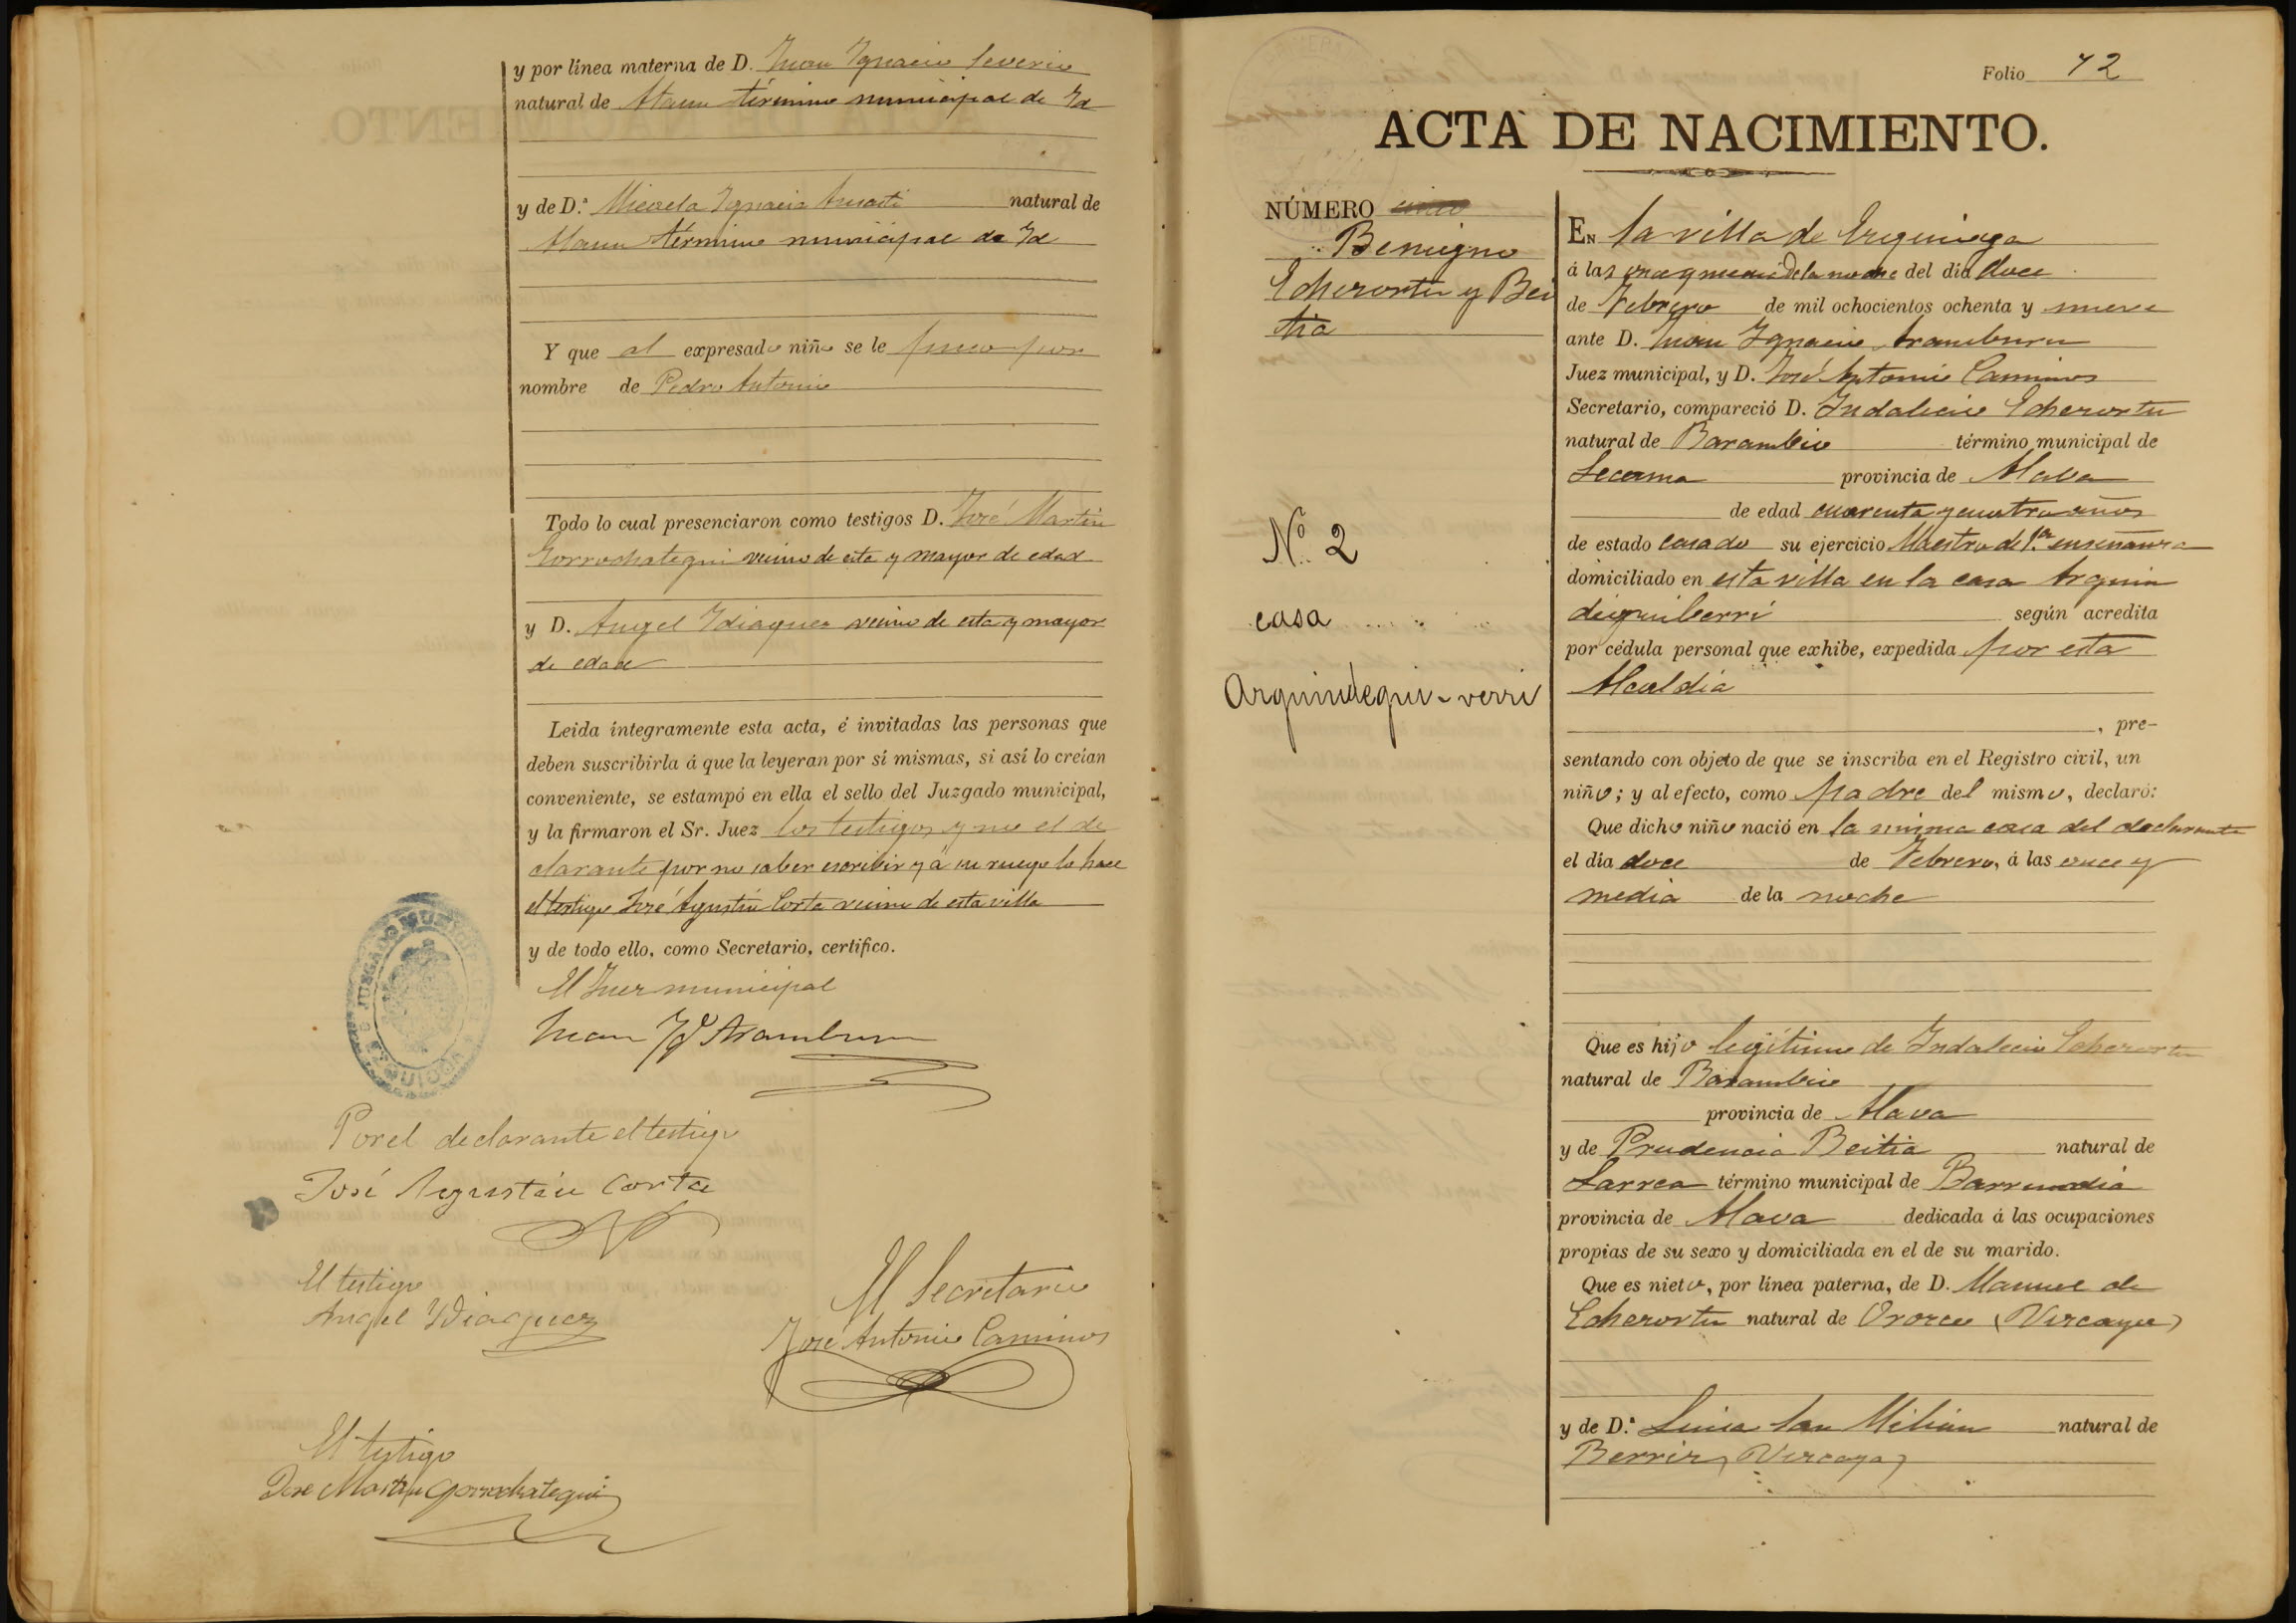 y por línea materna de D. Juan Ignacio
natural de término municipal de Id
y de D.ª Micaela Ignacia natural de
término municipal de Id
Y que al expresado niño se le puso por
nombre de Pedro Antonio
Todo lo cual presenciaron como testigos D. José Martin
Gorrochategui vecino de esta y mayor de edad
y D. Angel Idiaquez vecino de esta y mayor
de edad
Leida íntegramente esta acta, é invitadas las personas que
deben suscribirla á que la leyeran por sí mismas, si así lo creían
conveniente, se estampó en ella el sello del Juzgado municipal,
y la firmaron el Sr. Juez los testigos y no el de
clarante por no saber escribir y á su ruego lo hace
el testigo José Agustín Corta vecino de esta villa
y de todo ello, como Secretario, certifico.
El Juez municipal
Juan Yg.º Aramburu
JUZGADO MUNICIPAL
Por el declarante el testigo
José Agustín Corta
El testigo
Angel Ydiaquez
El Secretario
José Antonio Caminos
El testigo
José Martin Gorrochategui
Folio 72
ACTA DE NACIMIENTO.
NÚMERO
Benigno
Echerortu y Bei
tia
Nº 2
casa
Arguindegui-verri
EN la villa de
á las once y media de la noche del día doce
de Febrero de mil ochocientos ochenta y nueve
ante D. Juan Ignacio Aramburu
Juez municipal, y D. José Antonio Caminos
Secretario, compareció D. Indalecio Echerortu
natural de Barambio término municipal de
Lecama provincia de Alava
de edad cuarenta y cuatro años
de estado casado su ejercicio Maestro de 1.ª enseñanza
domiciliado en esta villa en la casa Arguin
deguiberri según acredita
por cédula personal que exhibe, expedida por esta
Alcaldía
, pre-
sentando con objeto de que se inscriba en el Registro civil, un
niño; y al efecto, como padre del mismo, declaró:
Que dicho niño nació en la misma casa del declarante
el día doce de Febrero, á las once y
media de la noche
Que es hijo legítimo de Indalecio Echerortu
natural de Barambio
provincia de Alava
y de Prudencia Beitia natural de
Larrea término municipal de Barrundia
provincia de Alava dedicada á las ocupaciones
propias de su sexo y domiciliada en el de su marido.
Que es nieto, por línea paterna, de D. Manuel de
Echerortu natural de Orozco (Vizcaya)
y de D.ª San Milian natural de
Berriz (Vizcaya)